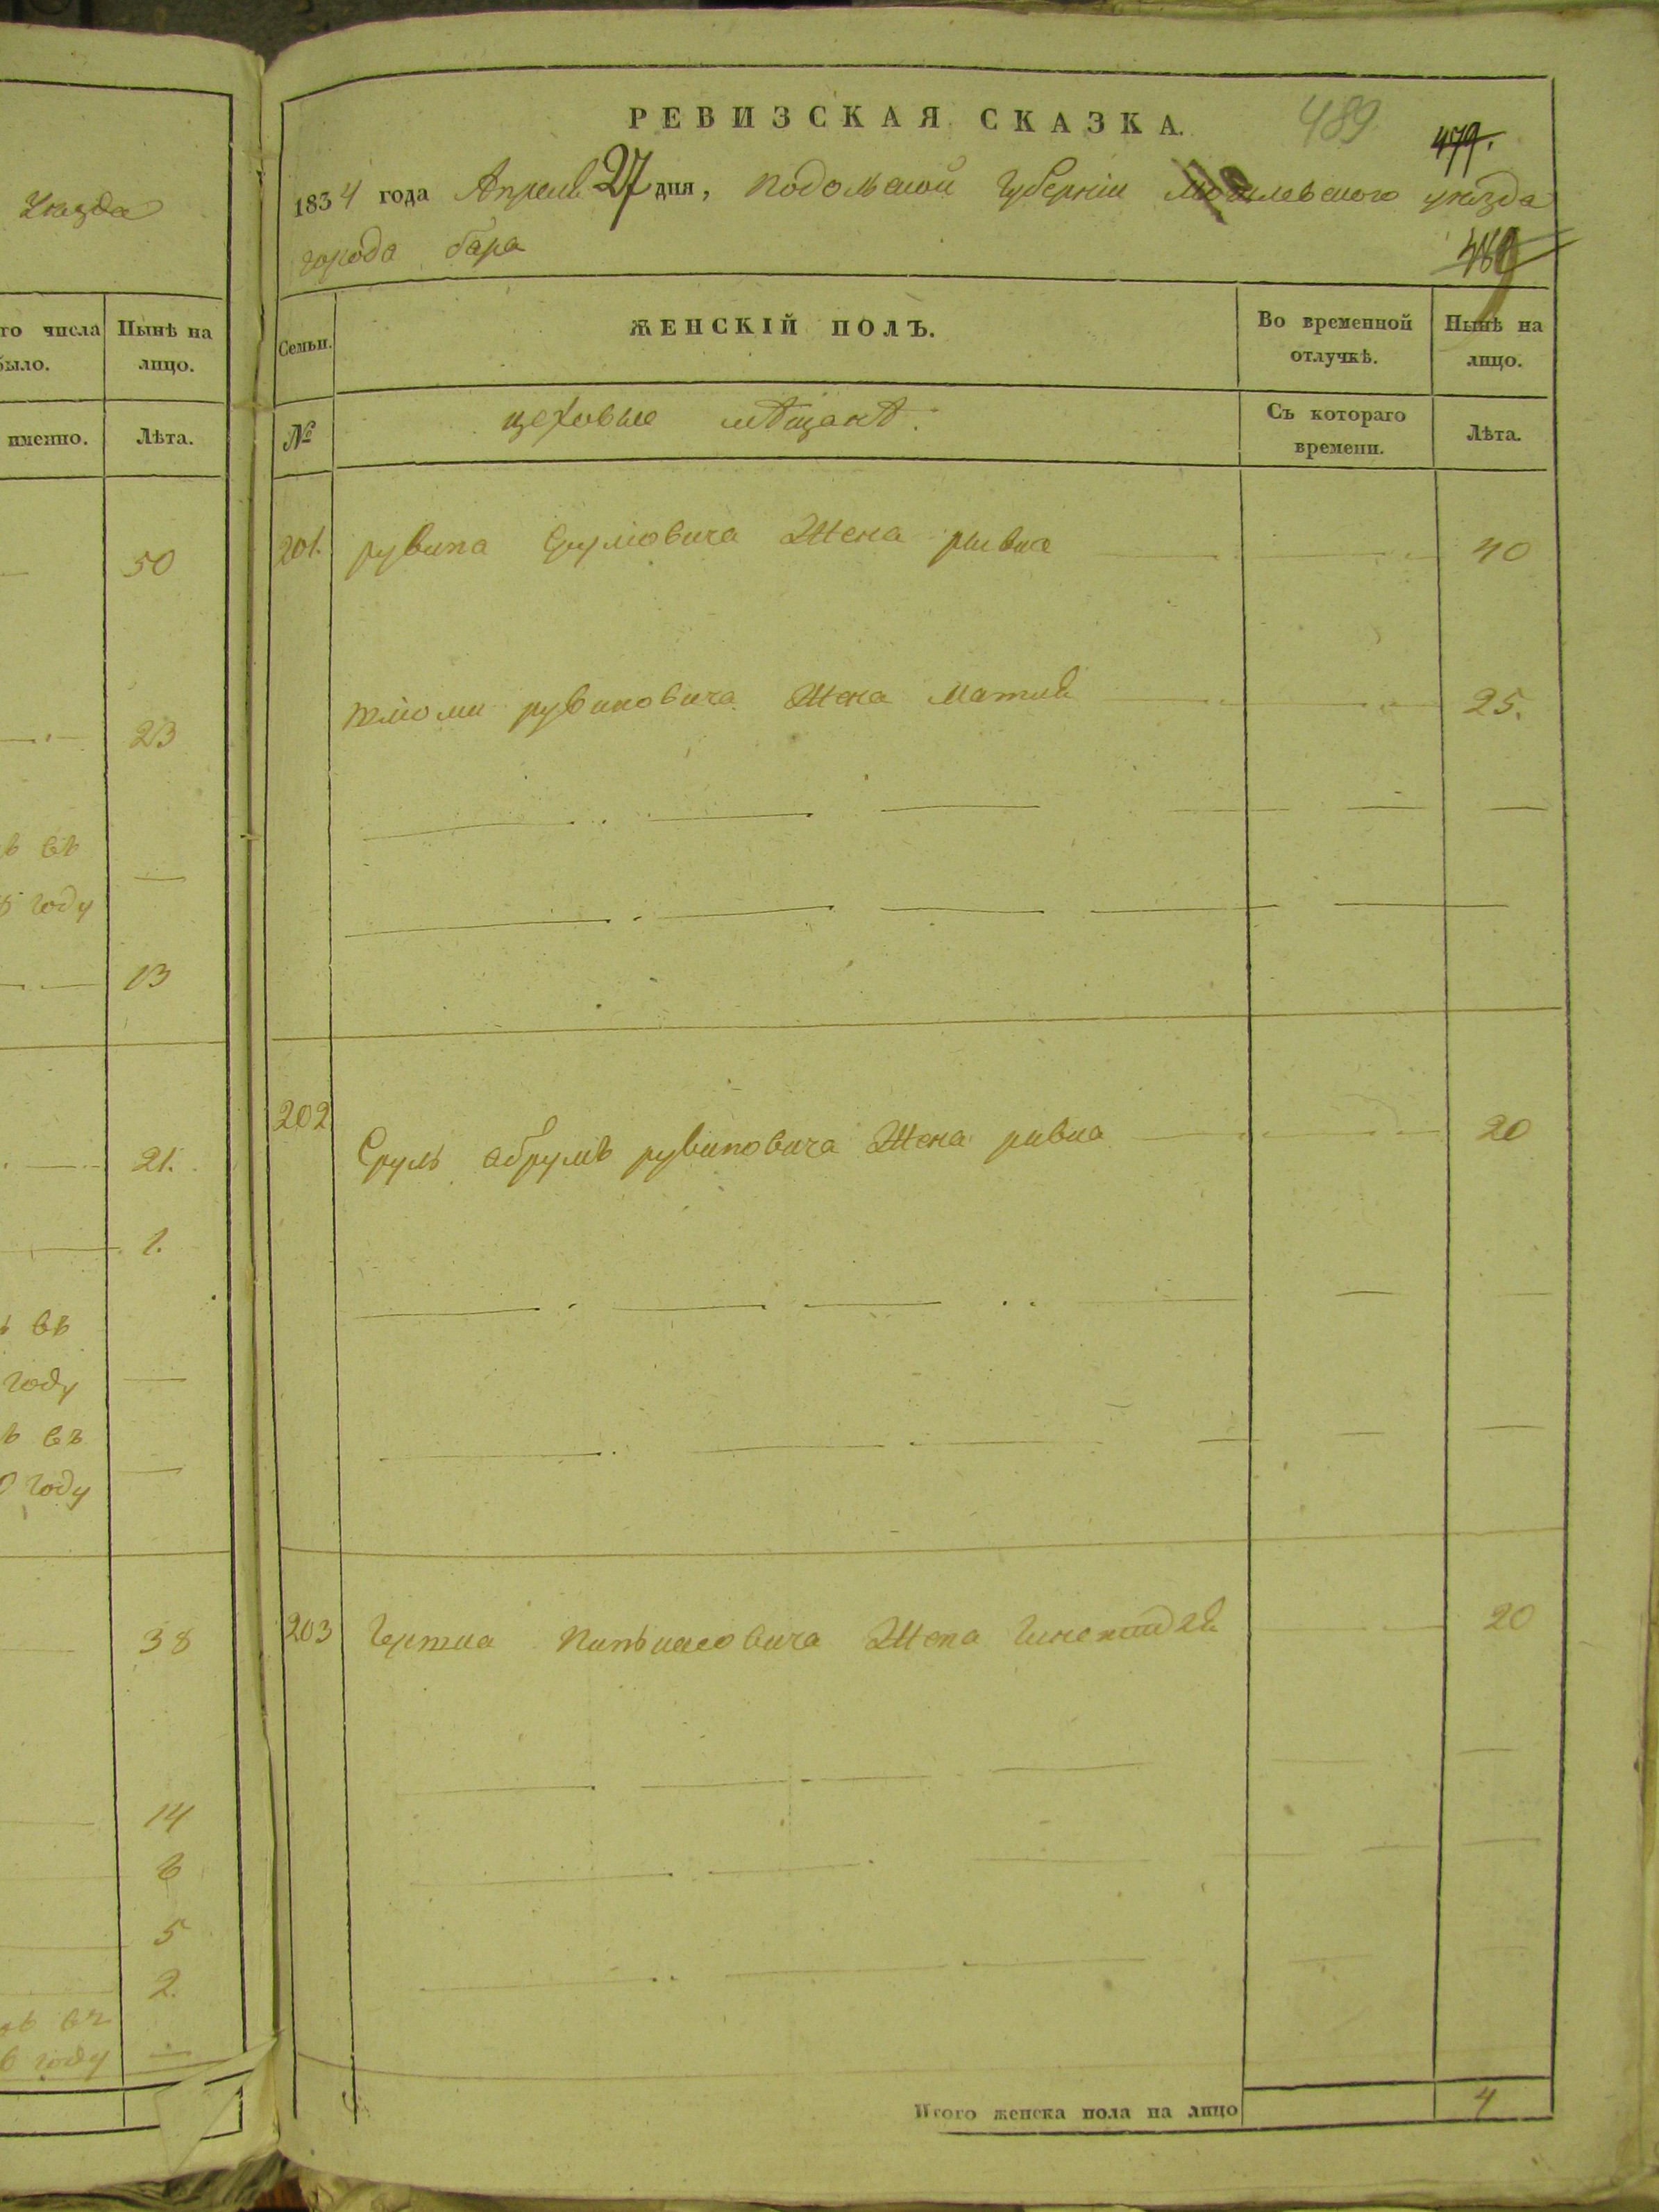 Уѣзда
го числа
было.
Нынѣ на
лицо.
именно.
Лѣта.
50
23
ъ въ
году
13
21.
1.
ъ въ
году
ъ въ
0 году
38
14
6
5
2.
въ
6 году
РЕВИЗСКАЯ СКАЗКА.
489
479.
1834 года Апреля 27 дня, Подольской Губернiи Могилевского уѣзда
города бара
Семьи.
ЖЕНСКIЙ ПОЛЪ.
Во временной
отлучкѣ.
Нынѣ на
лицо.
№
цеховые мѣщанѣ.
Съ котораго
времени.
Лѣта.
201. рувина Сруліовича Жена ривка 40
рувиновича Жена Матля 25.
202 Сруль абрумъ рувиновича Жена ривка 20
203 Пинькасовича Жена 20
Итого женска пола на лицо 4